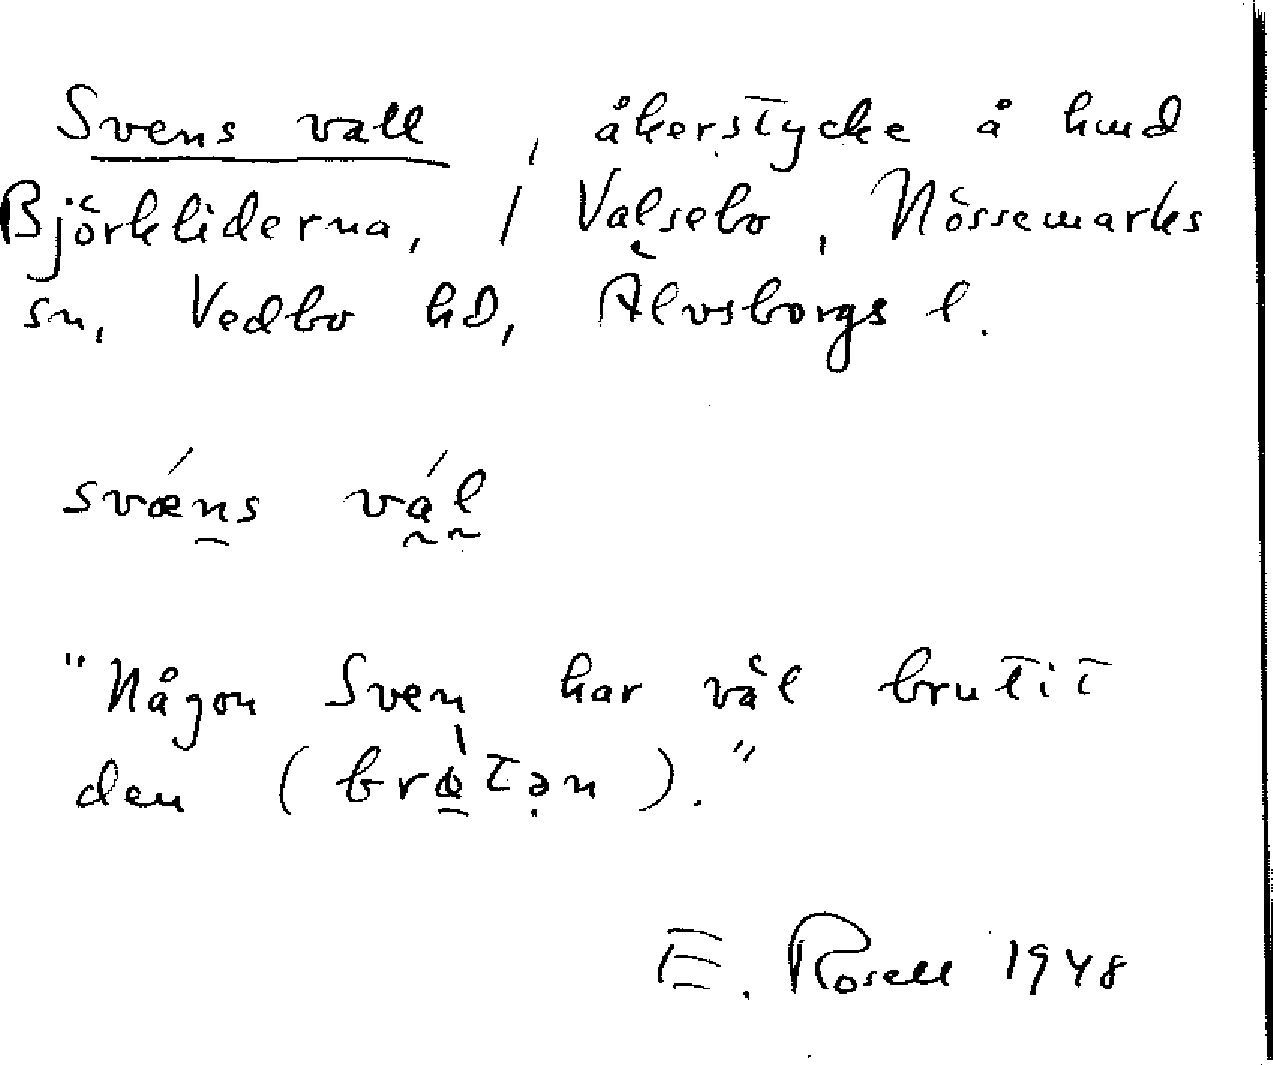 Svens vall, åkerstycke å hmd
Björkliderna, 1 Valsebo, Nössemarks
sn, Vedbo hd, Älvsborgs l.
svǽns vál
"Någon Sven har väl brutit
den (      )."
E. Rosell 1948